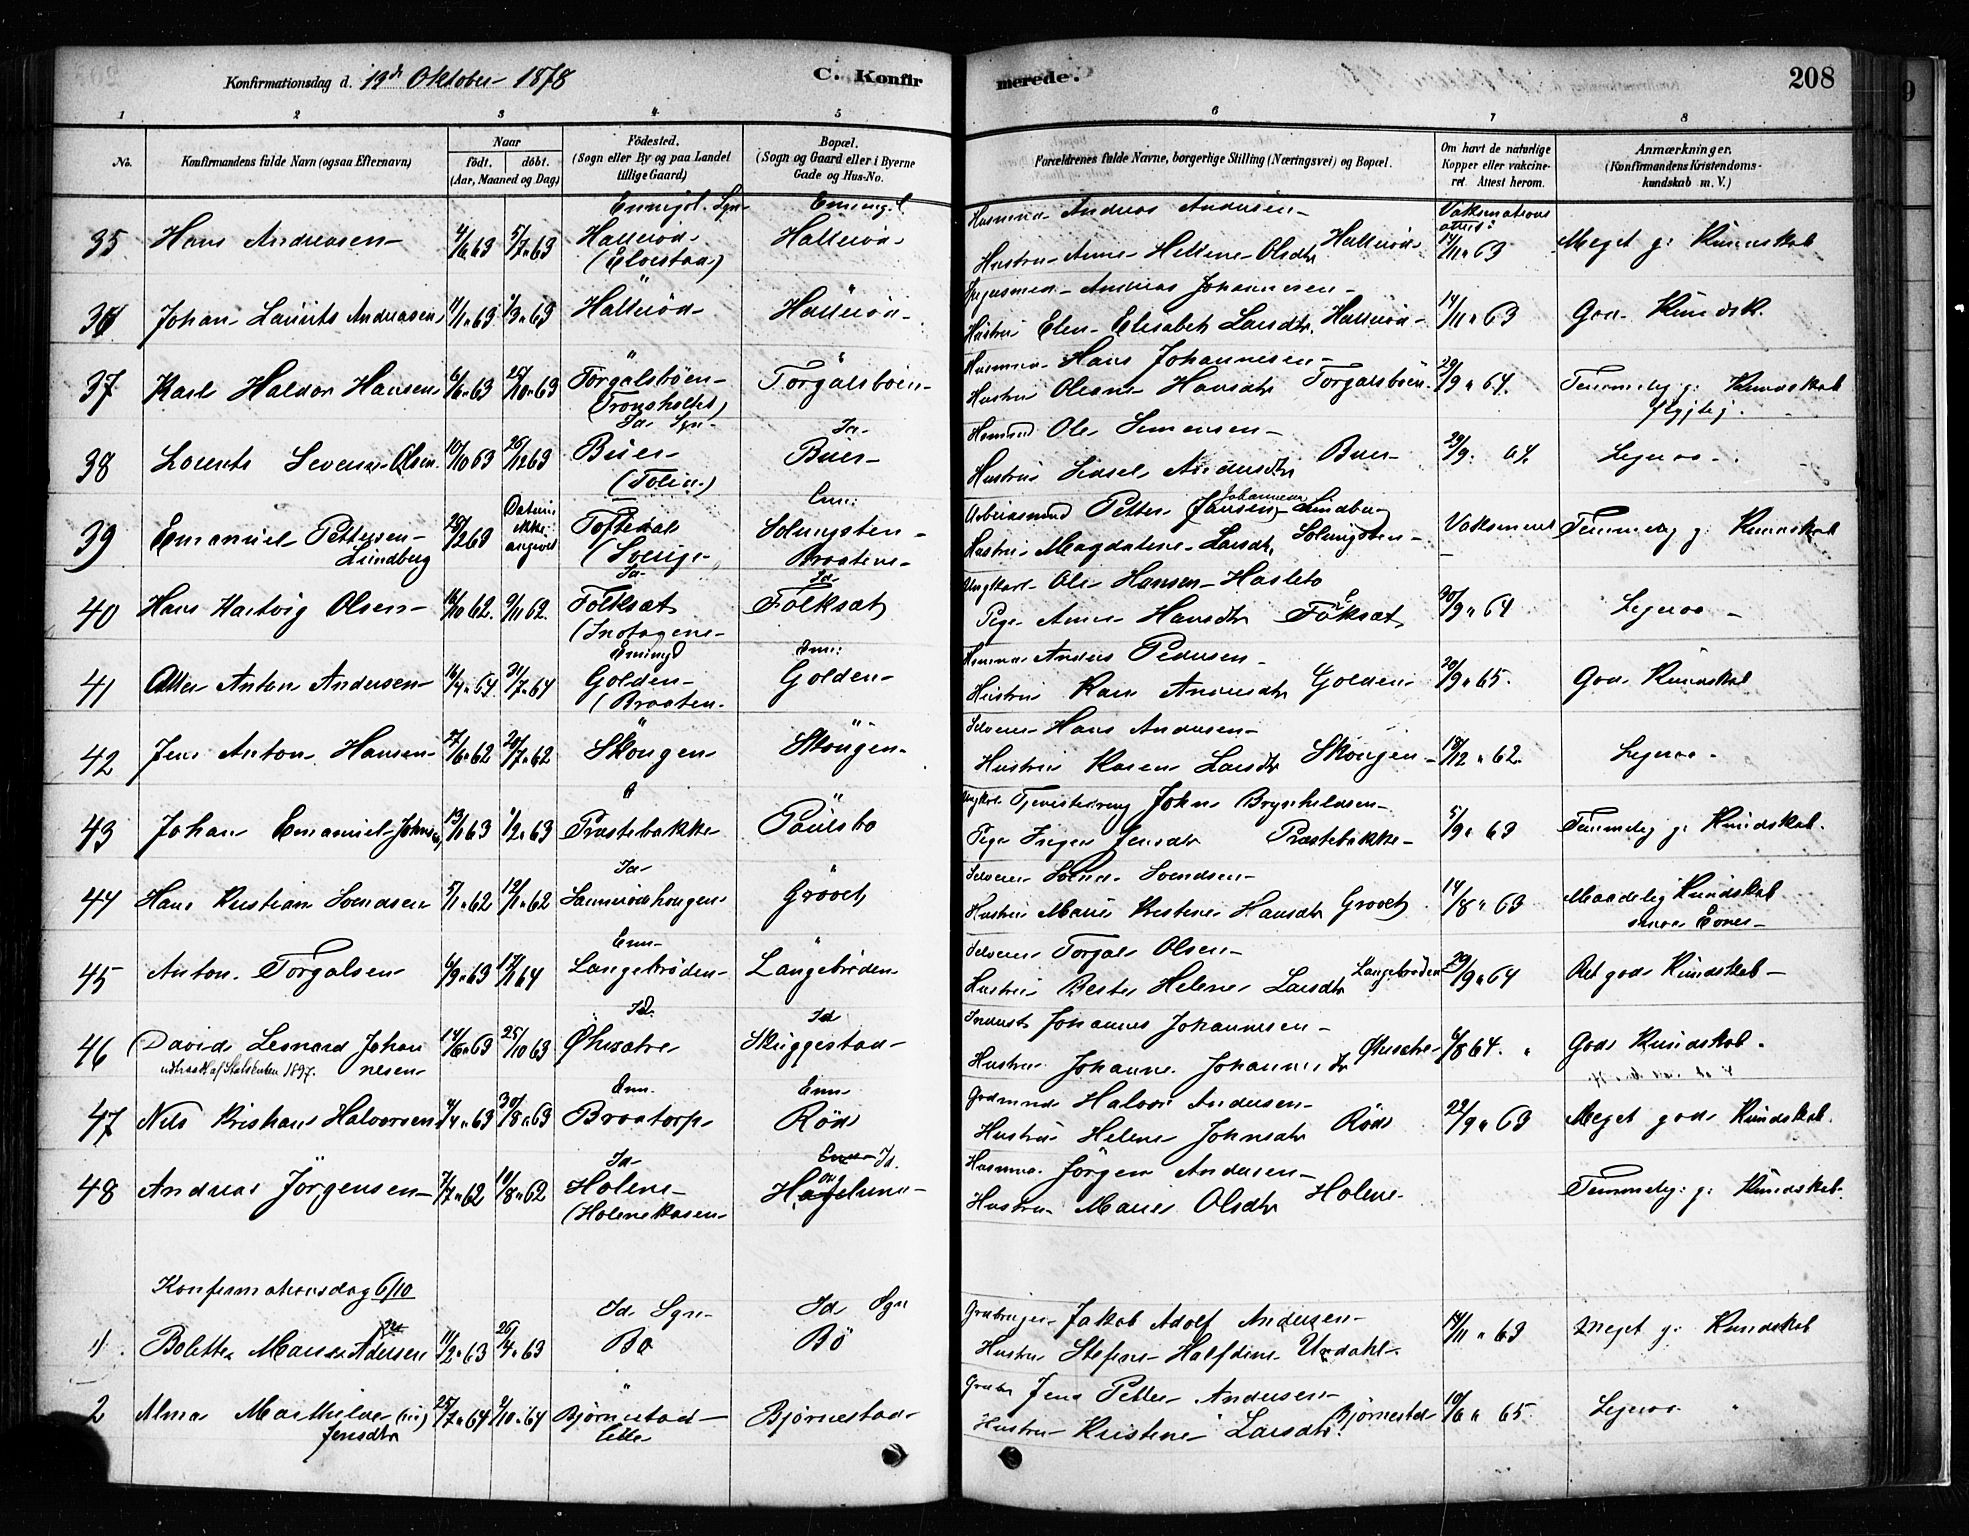 Konfirmationsdag d. 19de Oktober 1878
C. Konfir merede.
208
1 2 3 4 5 6 7 8
No.
Konfirmandens fulde Navn (ogsaa Efternavn)
Naar
født. døbt.
(Aar, Maaned og Dag)
Fødested.
(Sogn eller By og paa Landet
tillige Gaard)
Bopæl.
(Sogn og Gaard eller i Byerne
Gade og Hus-No.
Forældrenes fulde Navne, borgerlige Stilling (Næringsvei) og Bopæl.
Om havt de naturlige
Kopper eller vakcine-
ret. Attest herom.
Anmærkninger.
(Konfirmandens Kristendoms-
kundskab m. V.)
35 Hans Andreasen 4/6 63 5/7 63 Hallerød Hallerød
Andreas Andersen
Hustru Anne Hellene Olsdtr Hallerød 14/11 63 Meget g: Kundskab
36 Johan Laurits Andreasen 11/1 63 1/3 63 Hallerød Hallerød
Andreas Johannesen
Hustru Elen Elisabet Larsdtr Hallerød 14/11 63 God Kundsk.
37 Karl Haldor Hansen 6/6 63 25/10 63 Torgalsbøen Torgalsbøen
Husmand Hans Johannesen
Hustru Olesne Hansdtr Torgalsbøen 29/9 64. Temmelig g: Kundskab
(Tronsholtet)
38 Lorents Severin Olsen 10/10 63 26/12 63 Buer Buer
Ole Simensen
Hustru Lisel Andersdtr Buer 29/9 64 Ligesaa
39 Emanuel Pettersen Lindberg 28/2 63 Datum ikke angivet
Toftedal Solungsten
(Sverige Braatene
Arbeidsmand Petter (Jansen) Johannesen Lindberg
Hustru Magdalene Larsdtr Solungsten Vaksineret Temmelig g: Kundskab
40 Hans Hartvig Olsen 16/10 62. 9/11 62. Folksæt Folksæt
Ungkarl Ole Hansen Hasleto
Pige Anne Hansdtr Folksæt 30/9 64 Ligesaa
41 Anton Andersen 16/4 64 31/7 64 Golden Golden
(Braaten
Anders Pedersen
Hustru Karen Andersdtr Golden 20/9 65. God Kundskab
42 Jens Anton Hansen 27/6 62 20/7 62 Skougen Skougen
Selveier Hans Andersen
Hustru Karen Larsdtr Skougen 18/12 62. Ligesaa
43 Johan Emanuel Johnsen 13/1 63 1/2 63 Præstebakke Paulsbo
Ungkarl John Brynhildsen
Pige Inger Jensdtr Præstebakke 5/9 63 Temmelig g: Kundskab.
44 Hans Kristian Svendsen 5/1 62 12/1 62 Grøvet
Selveier Svend Svendsen
Hustru Marie Kristine Hansdtr Grøvet 14/8 63 Maadelig Kundskab
smaa Evner
45 Anton Torgalsen 6/9 63 17/1 64 Langebrøden Langebrøden
Selveier Torgal Olsen
Hustru Helene Larsdtr Langebrøden 29/9 64 Ret god Kundskab
46 David Leonard Johan nesen 14/6 63 25/10 63 Skriggestad
udtraadt af Statskirken 1897.
Johannes Johannesen
Hustru Johanne Johannesdtr 6/8 64. God Kundskab.
47 Nils Kristian Halvorsen 4/4 63 30/8 63 Braatorp Rød
Gaardmand Halvor Andersen
Hustru Helene Johnsdtr Rød 29/9 63 Meget god Kundskab.
48 Andreas Jörgensen 7/7 62 10/8 62 Holene
(Holenekasen
Husmand Jörgen Andersen
Hustru Maren Olsdtr Holene Temmelig g: Kundskab.
Konfirmationsdag 6/10
Id Sgn Id Sgn
1 Bolette 11/2 63 26/4 63 Bø Bø
Jakob Adolf Andersen
Hustru Stefine Halfdine Urdahl 14/11 63 Meget g: Kundskab
2 Alma Mathilde Jensdtr 25/7 64 9/10 64 Bjørnestad Bjørnestad
lille
Jens Petter Andersen
Hustru Kristine Larsdtr Bjørnestad 10/6 65. Ligesaa